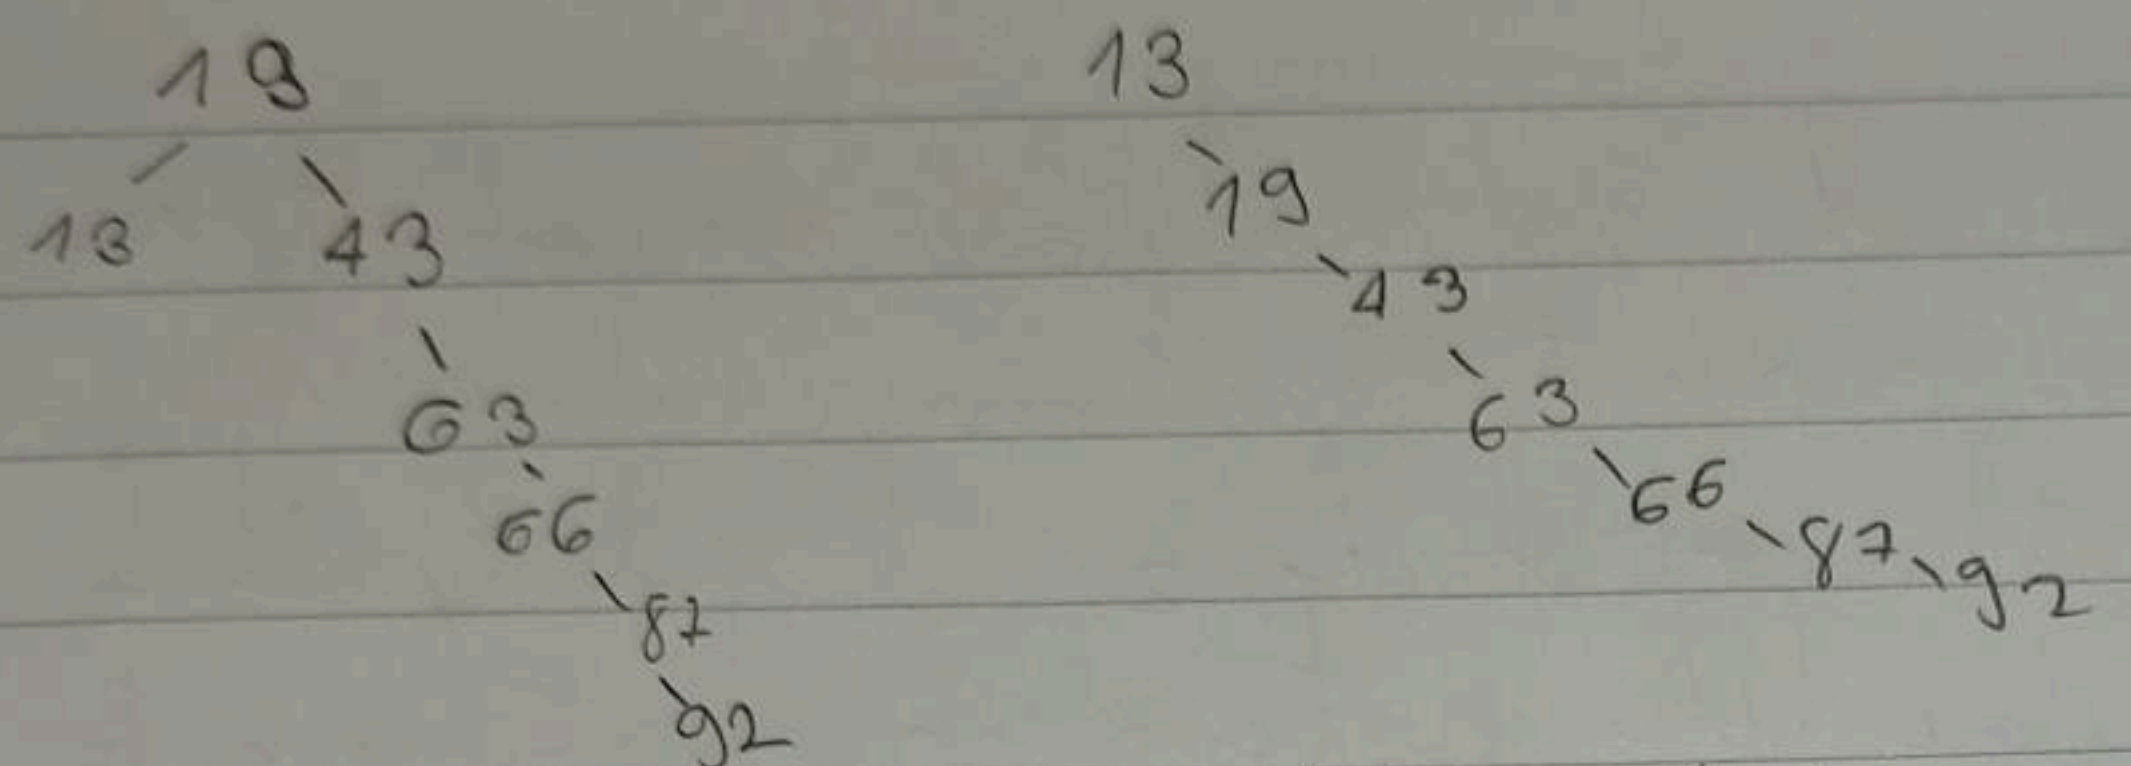 19
13 43
63
66
87
92
13
19
43
63
66
87
92